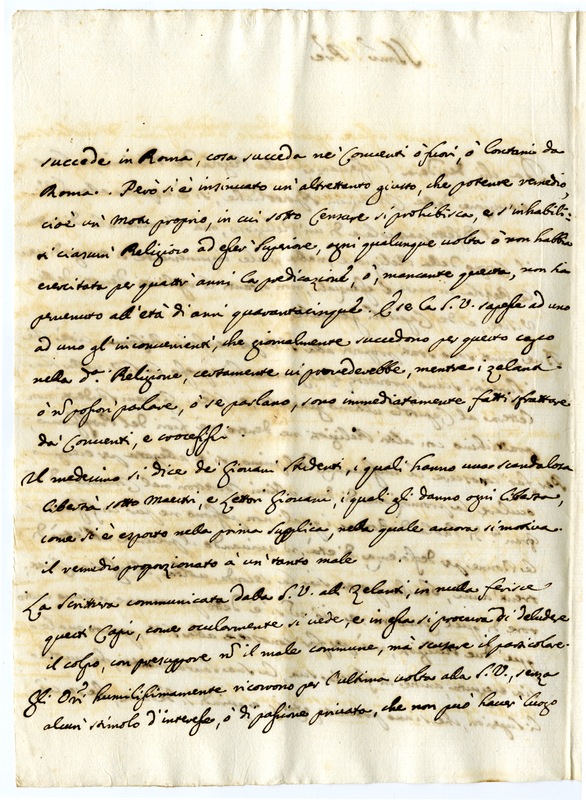 succede in Roma, cosa succeda nè Conventi ò fuori, ò lontani da
Roma. Però si è insinuato un'altrettanto giusto, che potente remedio,
cioè un Motu proprio, in cui sotto Censure si prohibisca, e s'inhabili-
ti ciascun Religioso ad esser Superiore, ogni qualunque volta ò non habbia
esercitata per quattr'anni la predicazione, ò, mancante questa, non ha
pervenuto all'età di anni quarantacinque. E se la S.V. sapesse ad uno
ad uno gl'inconvenienti, che giornalmente succedono per questo capo
nella d.ª Religione, certamente vi provederebbe, mentre i zelanti
ò ñ posson parlare, ò se parlano, sono immediatamente fatti sfrattare
da' Conventi, e crocefissi.
Il medesimo si dice de' Giovani Studenti, i quali hanno una scandalosa
libertà sotto Maestri, e Lettori Giovani, i quali gli danno ogni libertà,
come si è esposto nella prima supplica, nella quale ancora si motiva
il remedio proporzionato à un tanto male.
La Scrittura communicata dalla S.V. alli zelanti, in nulla ferisce
questi Capi, come ocularmente si vede, e in essa si procura di deludere
il colpo, con presupporre ñ il male commune, mà scusare il particolare.
Gli Ori humilissimamente ricorrono per l'ultima volta alla S.V., senza
alcun stimolo d'interesse, ò di passione privata, che non può haver luogo